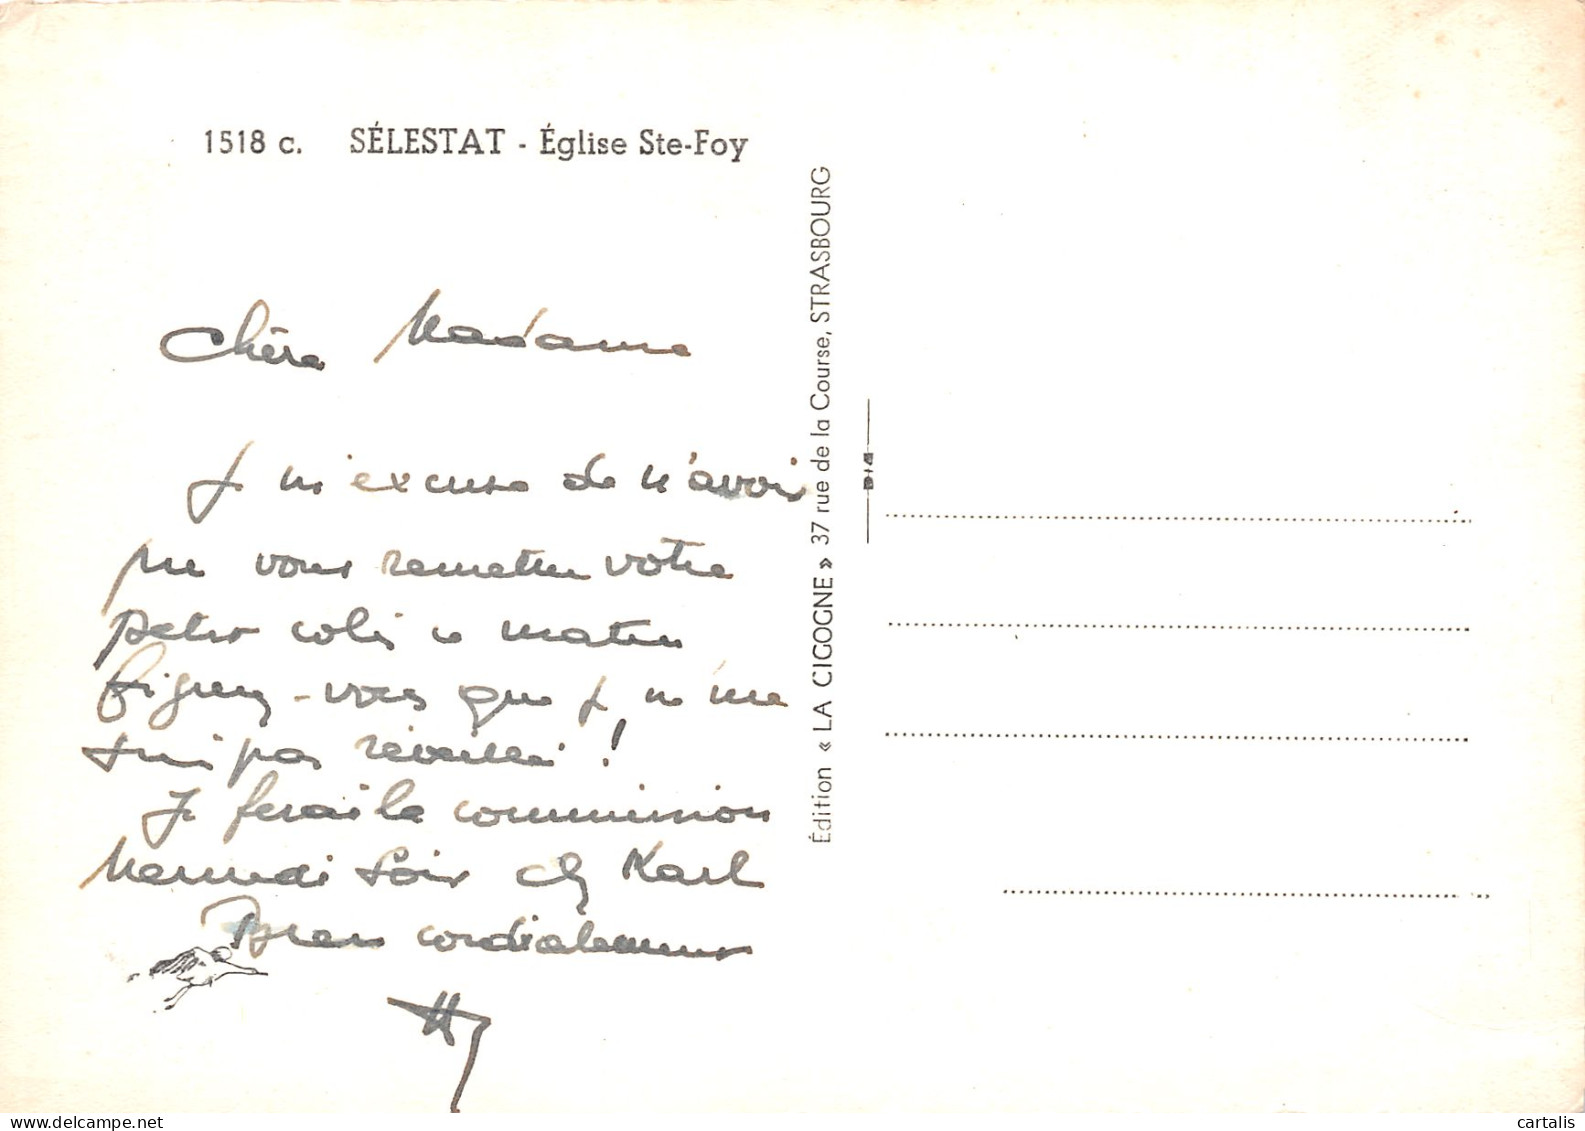 1518 c. SÉLESTAT - Église Ste-Foy
Chère Madame
Je m'excuse de n'avoir
pu vous remettre votre
petit colis ce matin
figurez-vous que je ne me
suis pas réveillé !
Je ferai la commission
Mercredi soir chez Karl
Bien cordialement
Édition « LA CIGOGNE » 37 rue de la Course, STRASBOURG
delcampe.net
cartalis